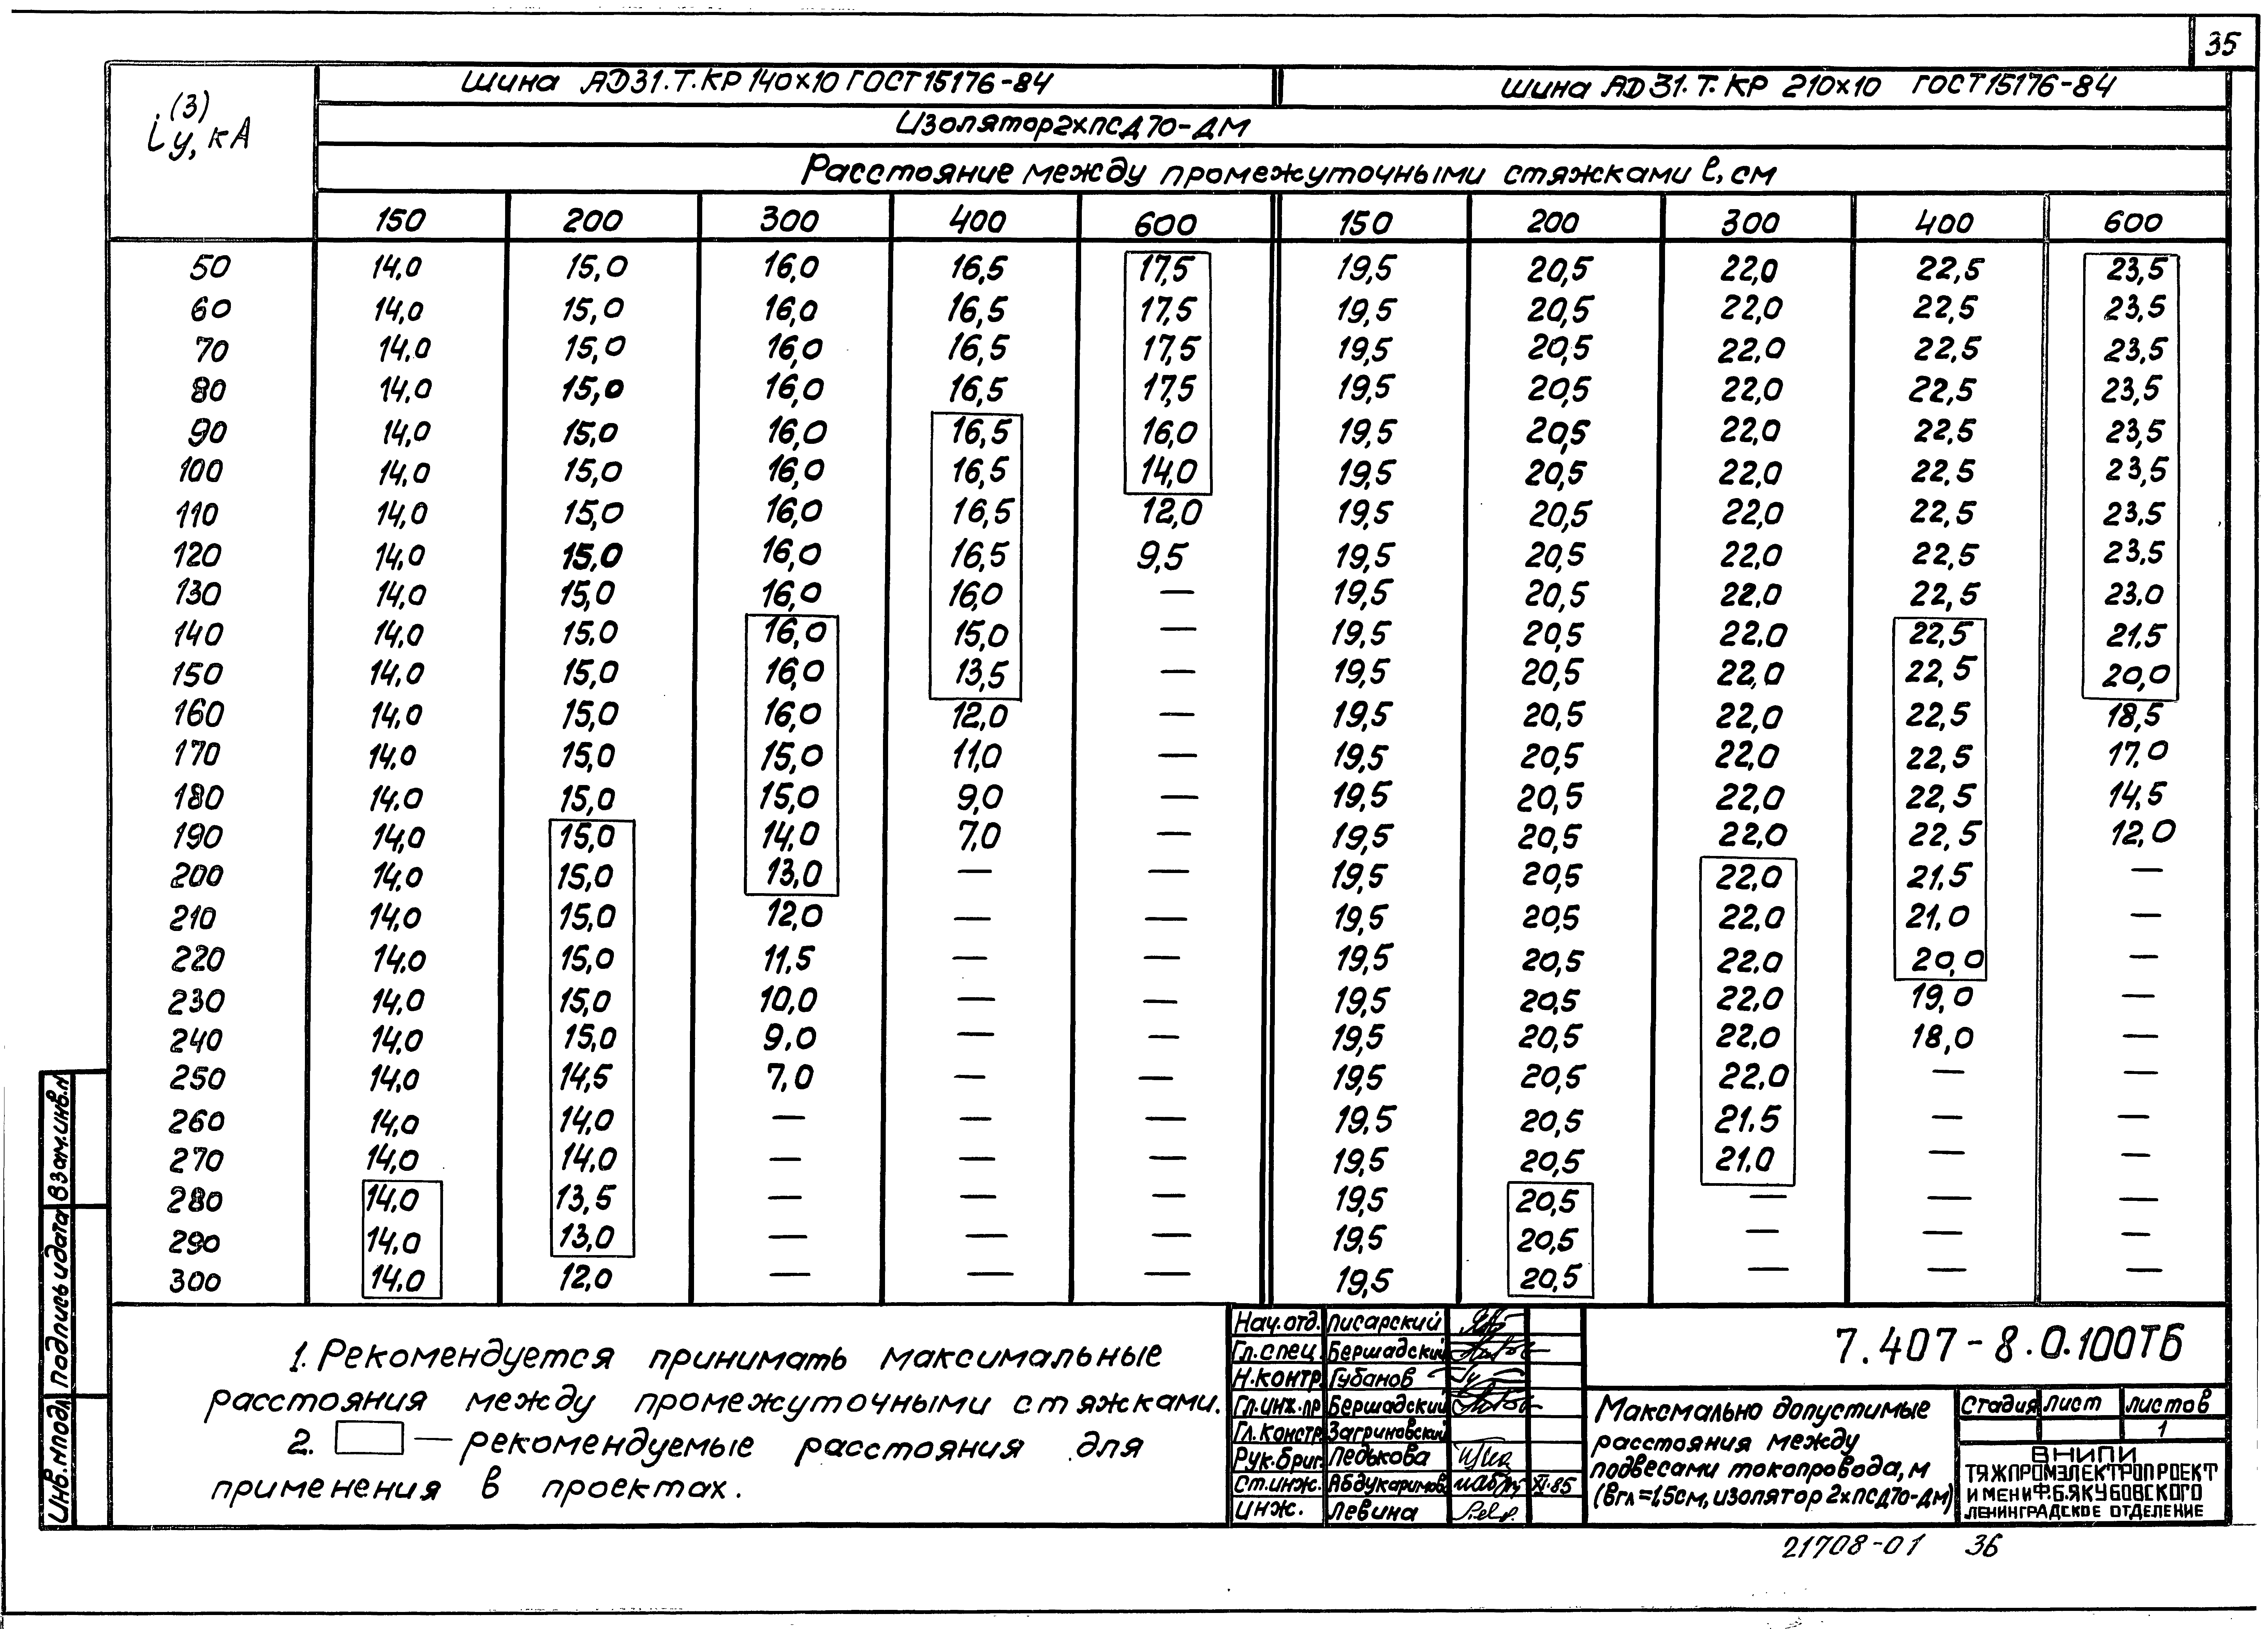 35
i(3) у, кА
Шина АД31.Т.КР 140х10 ГОСТ15176-84 Шина АД 31.Т.КР 210х10 ГОСТ15176-84
Изолятор 2хПСД70-ДМ
Расстояние между промежуточными стяжками l, см
150 200 300 400 600 150 200 300 400 600
50 14,0 15,0 16,0 16,5 17,5 19,5 20,5 22,0 22,5 23,5
60 14,0 15,0 16,0 16,5 17,5 19,5 20,5 22,0 22,5 23,5
70 14,0 15,0 16,0 16,5 17,5 19,5 20,5 22,0 22,5 23,5
80 14,0 15,0 16,0 16,5 17,5 19,5 20,5 22,0 22,5 23,5
90 14,0 15,0 16,0 16,5 16,0 19,5 20,5 22,0 22,5 23,5
100 14,0 15,0 16,0 16,5 14,0 19,5 20,5 22,0 22,5 23,5
110 14,0 15,0 16,0 16,5 12,0 19,5 20,5 22,0 22,5 23,5
120 14,0 15,0 16,0 16,5 9,5 19,5 20,5 22,0 22,5 23,5
130 14,0 15,0 16,0 16,0 — 19,5 20,5 22,0 22,5 23,0
140 14,0 15,0 16,0 15,0 — 19,5 20,5 22,0 22,5 21,5
150 14,0 15,0 16,0 13,5 — 19,5 20,5 22,0 22,5 20,0
160 14,0 15,0 16,0 12,0 — 19,5 20,5 22,0 22,5 18,5
170 14,0 15,0 15,0 11,0 — 19,5 20,5 22,0 22,5 17,0
180 14,0 15,0 15,0 9,0 — 19,5 20,5 22,0 22,5 14,5
190 14,0 15,0 14,0 7,0 — 19,5 20,5 22,0 22,5 12,0
200 14,0 15,0 13,0 — — 19,5 20,5 22,0 21,5 —
210 14,0 15,0 12,0 — — 19,5 20,5 22,0 21,0 —
220 14,0 15,0 11,5 — — 19,5 20,5 22,0 20,0 —
230 14,0 15,0 10,0 — — 19,5 20,5 22,0 19,0 —
240 14,0 15,0 9,0 — — 19,5 20,5 22,0 18,0 —
250 14,0 14,5 7,0 — — 19,5 20,5 22,0 — —
260 14,0 14,0 — — — 19,5 20,5 21.5 — —
270 14,0 14,0 — — — 19,5 20,5 21.0 — —
280 14,0 13,5 — — — 19,5 20,5 — — —
290 14,0 13,0 — — — 19,5 20,5 — — —
300 14,0 12,0 — — — 19,5 20,5 — — —
1. Рекомендуется принимать максимальные
расстояния между промежуточными стяжками.
2. — рекомендуемые расстояния для
применения в проектах.
Нач.отд. Писарский
Гл.спец. Бершадский
Н.контр. Губанов
Гл.инж.пр Бершадский
Гл.констр. Загриновский
Рук.бриг. Ледькова
Ст.инж. Абдукаримов XI.85
Инж. Левина
7.407-8.0.100ТБ
Максмально допустимые
расстояния между
подвесами токопровода, м
(вгл=1,5см, изолятор 2хПСД70-ДМ)
Стадия Лист Листов
1
ВНИПИ
ТЯЖПРОМЭЛЕКТРОПРОЕКТ
ИМЕНИ Ф.Б.ЯКУБОВСКОГО
ЛЕНИНГРАДСКОЕ ОТДЕЛЕНИЕ
Инв.№подл. Подпись и дата Взам.инв.№
21708-01 36